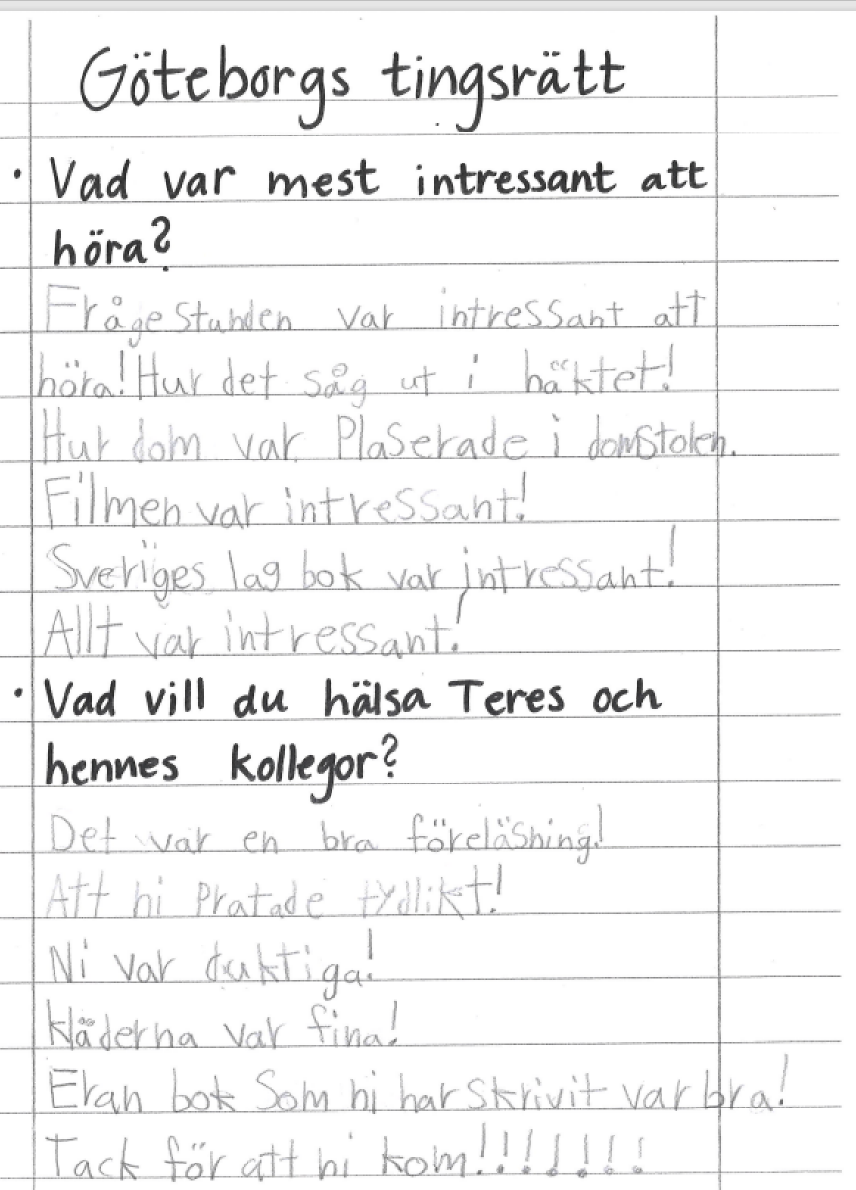 Göteborgs tingsrätt
• Vad var mest intressant att
höra?
Frågestunden var intressant att
höra! Hur det såg ut i häktet!
Hur dom var Plaserade i domstolen.
Filmen var intressant!
Sveriges lag bok var intressant!
Allt var intressant!
• Vad vill du hälsa Teres och
hennes kollegor?
Det var en bra föreläsning!
Att ni Pratade tydlikt!
Ni var duktiga!
kläderna var fina!
Eran bok Som ni har skrivit var bra!
Tack för att ni kom!!!!!!!!